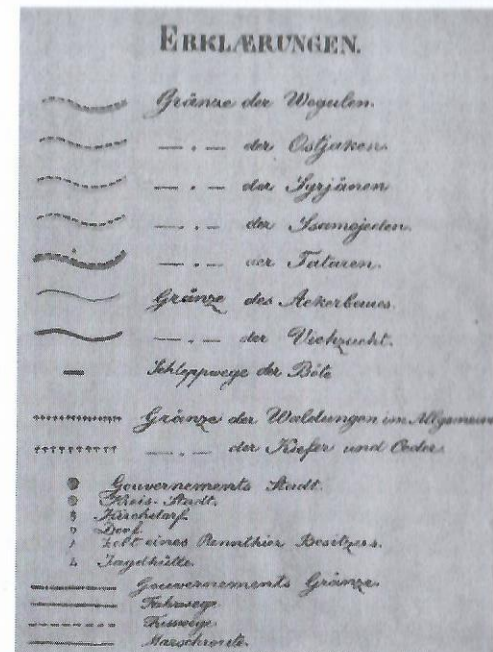 ERKLÆRUNGEN.
Gränze der Wogulen.
— . — der Ostjaken.
— . — der Syrjänen
— . — der Ssamojeden.
— . — der Tataren.
Gränze des Ackerbaues.
— . — der Viehzucht.
Schleppwege der Böte
Gränze der Waldungen im Allgemein
— . — der Kiefer und Ceder.
Gouvernements Stadt.
Kreis-Stadt.
Kirchdorf.
Dorf.
Zelt eines Rennthier Besitzers.
Jagdhütte.
Gouvernements Gränze.
Fahrwege.
Fusswege.
Marschroute.